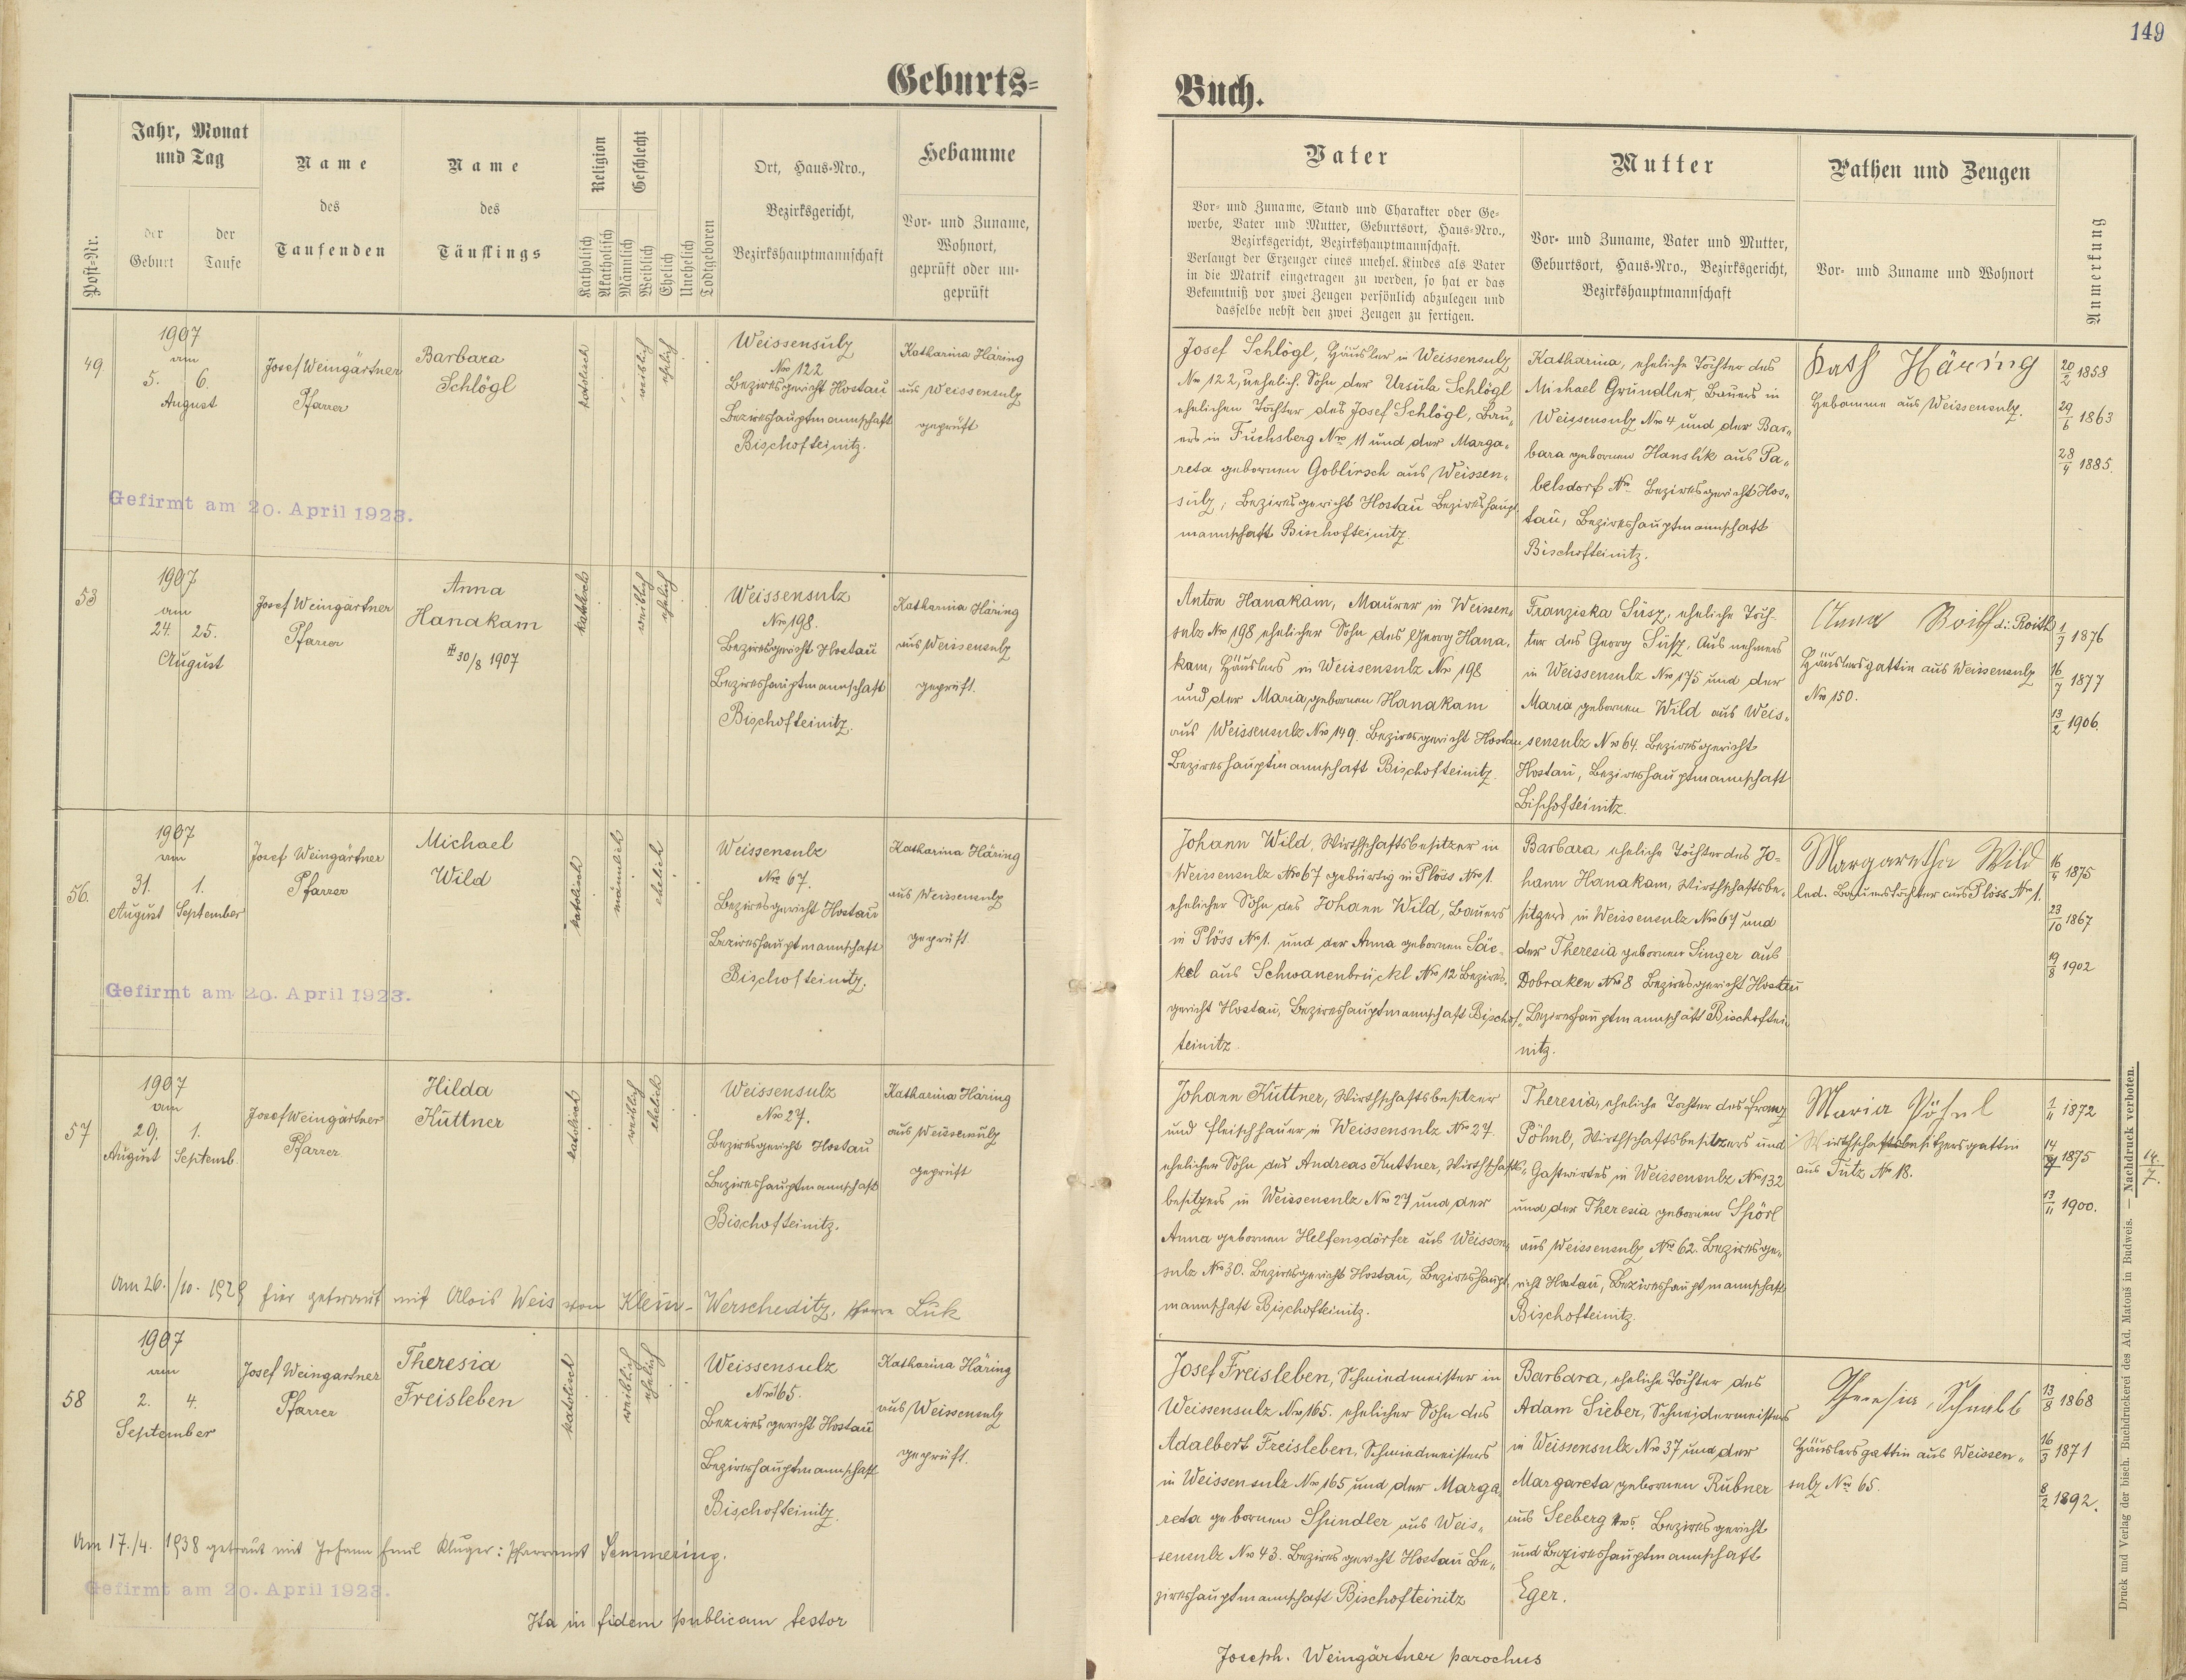 149
Geburts-
Buch.
Post-Nr.
Jahr, Monat
und Tag
der
Geburt
der
Taufe
Name
des
Taufenden
Name
des
Täuflings
Religion
Katholisch
Akatholisch
Geschlecht
Männlich
Weiblich
Ehelich
Unehelich
Todtgeboren
Ort, Haus-Nro.,
Bezirksgericht,
Bezirkshauptmannschaft
Hebamme
Vor- und Zuname,
Wohnort,
geprüft oder un-
geprüft
Vater
Vor- und Zuname, Stand und Charakter oder Ge-
werbe, Vater und Mutter, Geburtsort, Haus-Nro.,
Bezirksgericht, Bezirkshauptmannschaft.
Verlangt der Erzeuger eines unehel. Kindes als Vater
in die Matrik eingetragen zu werden, so hat er das
Bekenntniß vor zwei Zeugen persönlich abzulegen und
dasselbe nebst den zwei Zeugen zu fertigen.
Mutter
Vor- und Zuname, Vater und Mutter,
Geburtsort, Haus-Nro., Bezirksgericht,
Bezirkshauptmannschaft
Pathen und Zeugen
Vor- und Zuname und Wohnort
Anmerkung
49.
1907
am
5. 6.
August
Josef Weingärtner
Pfarrer
Barbara
Schlögl
katolisch
weiblich
ehelich
Weissensulz
Nro 122
Bezirksgericht Hostau
Bezirkshauptmannschaft
Bischofteinitz.
Katharina Häring
aus Weissensulz
geprüft
Josef Schlögl, Häusler in Weissensulz
Nro 122, unehelich. Sohn der Ursula Schlögl
ehelichen Tochter des Josef Schlögl, Bau-
ers in Fuchsberg Nro 11 und der Marga-
reta gebornen Goblirsch aus Weissen-
sulz; Bezirksgericht Hostau Bezirkshaupt
mannschaft Bischofteinitz.
Katharina, eheliche Tochter des
Michael Gründler, Bauers in
Weissensulz Nro 4 und der Bar-
bara gebornen Hanslik aus Pa-
belsdorf Nr Bezirksgericht Hos-
tau, Bezirkshauptmannschaft
Bischofteinitz.
Kath Häring
Hebamme aus Weissensulz.
20/2 1858
29/6 1863
28/4 1885.
Gefirmt am 20. April 1923.
53
1907
am
24. 25.
August
Josef Weingärtner
Pfarrer
Anna
Hanakam
30/8 1907
katolisch
weiblich
ehelich
Weissensulz
Nro 198.
Bezirksgericht Hostau
Bezirkshauptmannschaft
Bischofteinitz.
Katharina Häring
aus Weissensulz
geprüft.
Anton Hanakam, Maurer in Weissen-
sulz Nro 198 ehelicher Sohn des Georg Hana-
kam, Häuslers in Weissensulz Nro 198
und der Maria gebornen Hanakam
aus Weissensulz Nro 149. Bezirksgericht Hostau
Bezirkshauptmannschaft Bischofteinitz.
Franziska Süsz, eheliche Toch-
ter des Georg Süsz, Ausnehmers
in Weissensulz Nro 175 und der
Maria gebornen Wild aus Weis-
sensulz Nro 64. Bezirksgericht
Hostau, Bezirkshauptmannschaft
Bischofteinitz.
Anna Roith di: Roith
Häuslersgattin aus Weissensulz
Nro 150.
1/7 1876
16/7 1877
13/2 1906.
56.
1907
am
31. 1.
August September
Josef Weingärtner
Pfarrer
Michael
Wild
katolisch
männlich
ehelich
Weissensulz
Nro 67.
Bezirksgericht Hostau
Bezirkshauptmannschaft
Bischofteinitz.
Katharina Häring
aus Weissensulz
geprüft.
Johann Wild, Wirthschaftsbesitzer in
Weissensulz Nro 67 gebürtig in Plöss Nro 1.
ehelicher Sohn des Johann Wild, Bauers
in Plöss Nro 1. und der Anna gebornen Säc-
kel aus Schwanenbrückl Nro 12 Bezirks-
gericht Hostau, Bezirkshauptmannschaft Bischof-
teinitz
Barbara eheliche Tochter des Jo-
hann Hanakam, Wirthschaftsbe-
sitzers in Weissensulz Nro 67 und
der Theresia gebornen Singer aus
Dobraken Nro 8 Bezirksgericht Hostau
Bezirkshauptmannschaft Bischoftei-
nitz.
Margaretha Wild
led. Bauerstochter aus Plöss Nro 1.
1875
23/10 1867
19/8 1902
Gefirmt am 20. April 1923.
57
1907
am
29. 1.
August Septemb.
Josef Weingärtner
Pfarrer
Hilda
Küttner
katolisch
weiblich
ehelich
Weissensulz
Nro 27.
Bezirksgericht Hostau
Bezirkshauptmannschaft
Bischofteinitz.
Katharina Häring
aus Weissensulz
geprüft
Johann Küttner, Wirthschaftsbesitzer
und Fleischhauer in Weissensulz Nro 27.
ehelicher Sohn des Andreas Küttner, Wirthschafts-
besitzers in Weissensulz Nro 27 und der
Anna gebornen Helfensdörfer aus Weissen-
sulz Nro 30. Bezirksgericht Hostau, Bezirkshaupt
mannschaft Bischofteinitz.
Theresia, eheliche Tochter des Franz
Pöhnl, Wirthschaftsbesitzers und
Gastwirtes in Weissensulz Nro 132
und der Theresia gebornen Spörl
aus Weissensulz Nro 62. Bezirksge-
richt Hostau, Bezirkshauptmannschaft
Bischofteinitz.
Maria Pöhnl
Wirthschaftsbesitzersgattin
aus Tutz Nr 18.
1/11 1872
1875
13/11 1900.
14./7.
Am 26./10. 1929 hier getraut mit Alois Weis von Klein-Werscheditz, Pfarre Luk
58
1907
am
2. 4.
September
Josef Weingartner
Pfarrer
Theresia
Freisleben
katolisch
weiblich
ehelich
Weissensulz
Nro 165.
Bezirksgericht Hostau
Bezirkshauptmannschaft
Bischofteinitz.
Katharina Häring
aus Weissensulz
geprüft.
Josef Freisleben, Schmiedmeister in
Weissensulz Nro 165. ehelicher Sohn des
Adalbert Freisleben, Schmiedmeisters
in Weissensulz Nro 165 und der Marga-
reta gebornen Spindler aus Weis-
sensulz Nro 43. Bezirksgericht Hostau Be-
zirkshauptmannschaft Bischofteinitz
Barbara, eheliche Tochter des
Adam Sieber, Schneidermeisters
in Weissensulz Nro 37 und der
Margareta gebornen Rubner
aus Seeberg Bezirksgericht
und Bezirkshauptmannschaft
Eger.
Theresia
Häuslersgattin aus Weissen-
sulz Nro 65.
13/8 1868
16/3 1871
8/2 1892.
Am 17./4. 1938 getraut mit Johann Emil Kluger: Pfarramt Semmering.
Gefirmt am 20. April 1923.
Ita in fidem publicam testor
Joseph. Weingärtner parochus
Druck und Verlag der bisch. Buchdruckerei des Ad. Matouš in Budweis. — Nachdruck verboten.